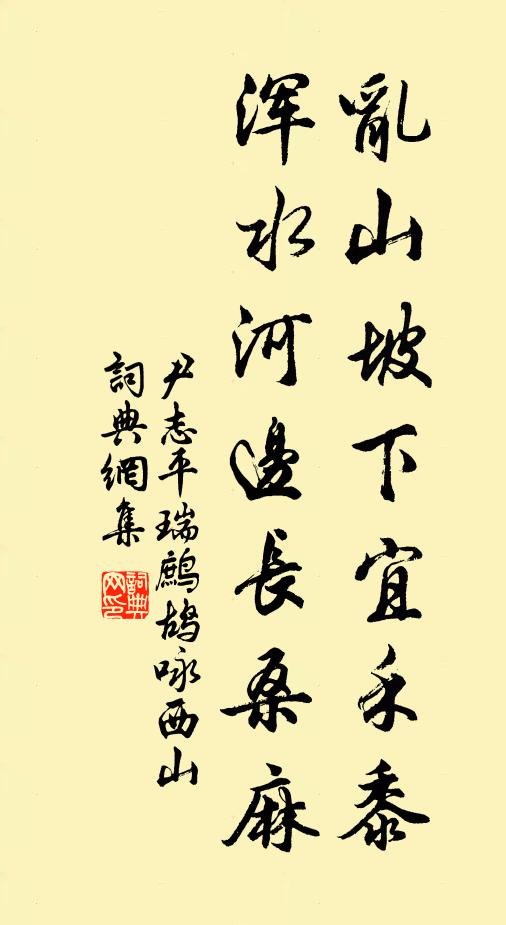 亂山坡下宜禾黍
渾水河邊長桑麻
尹志平瑞鷓鴣咏西山
詞典網集
詞典网印